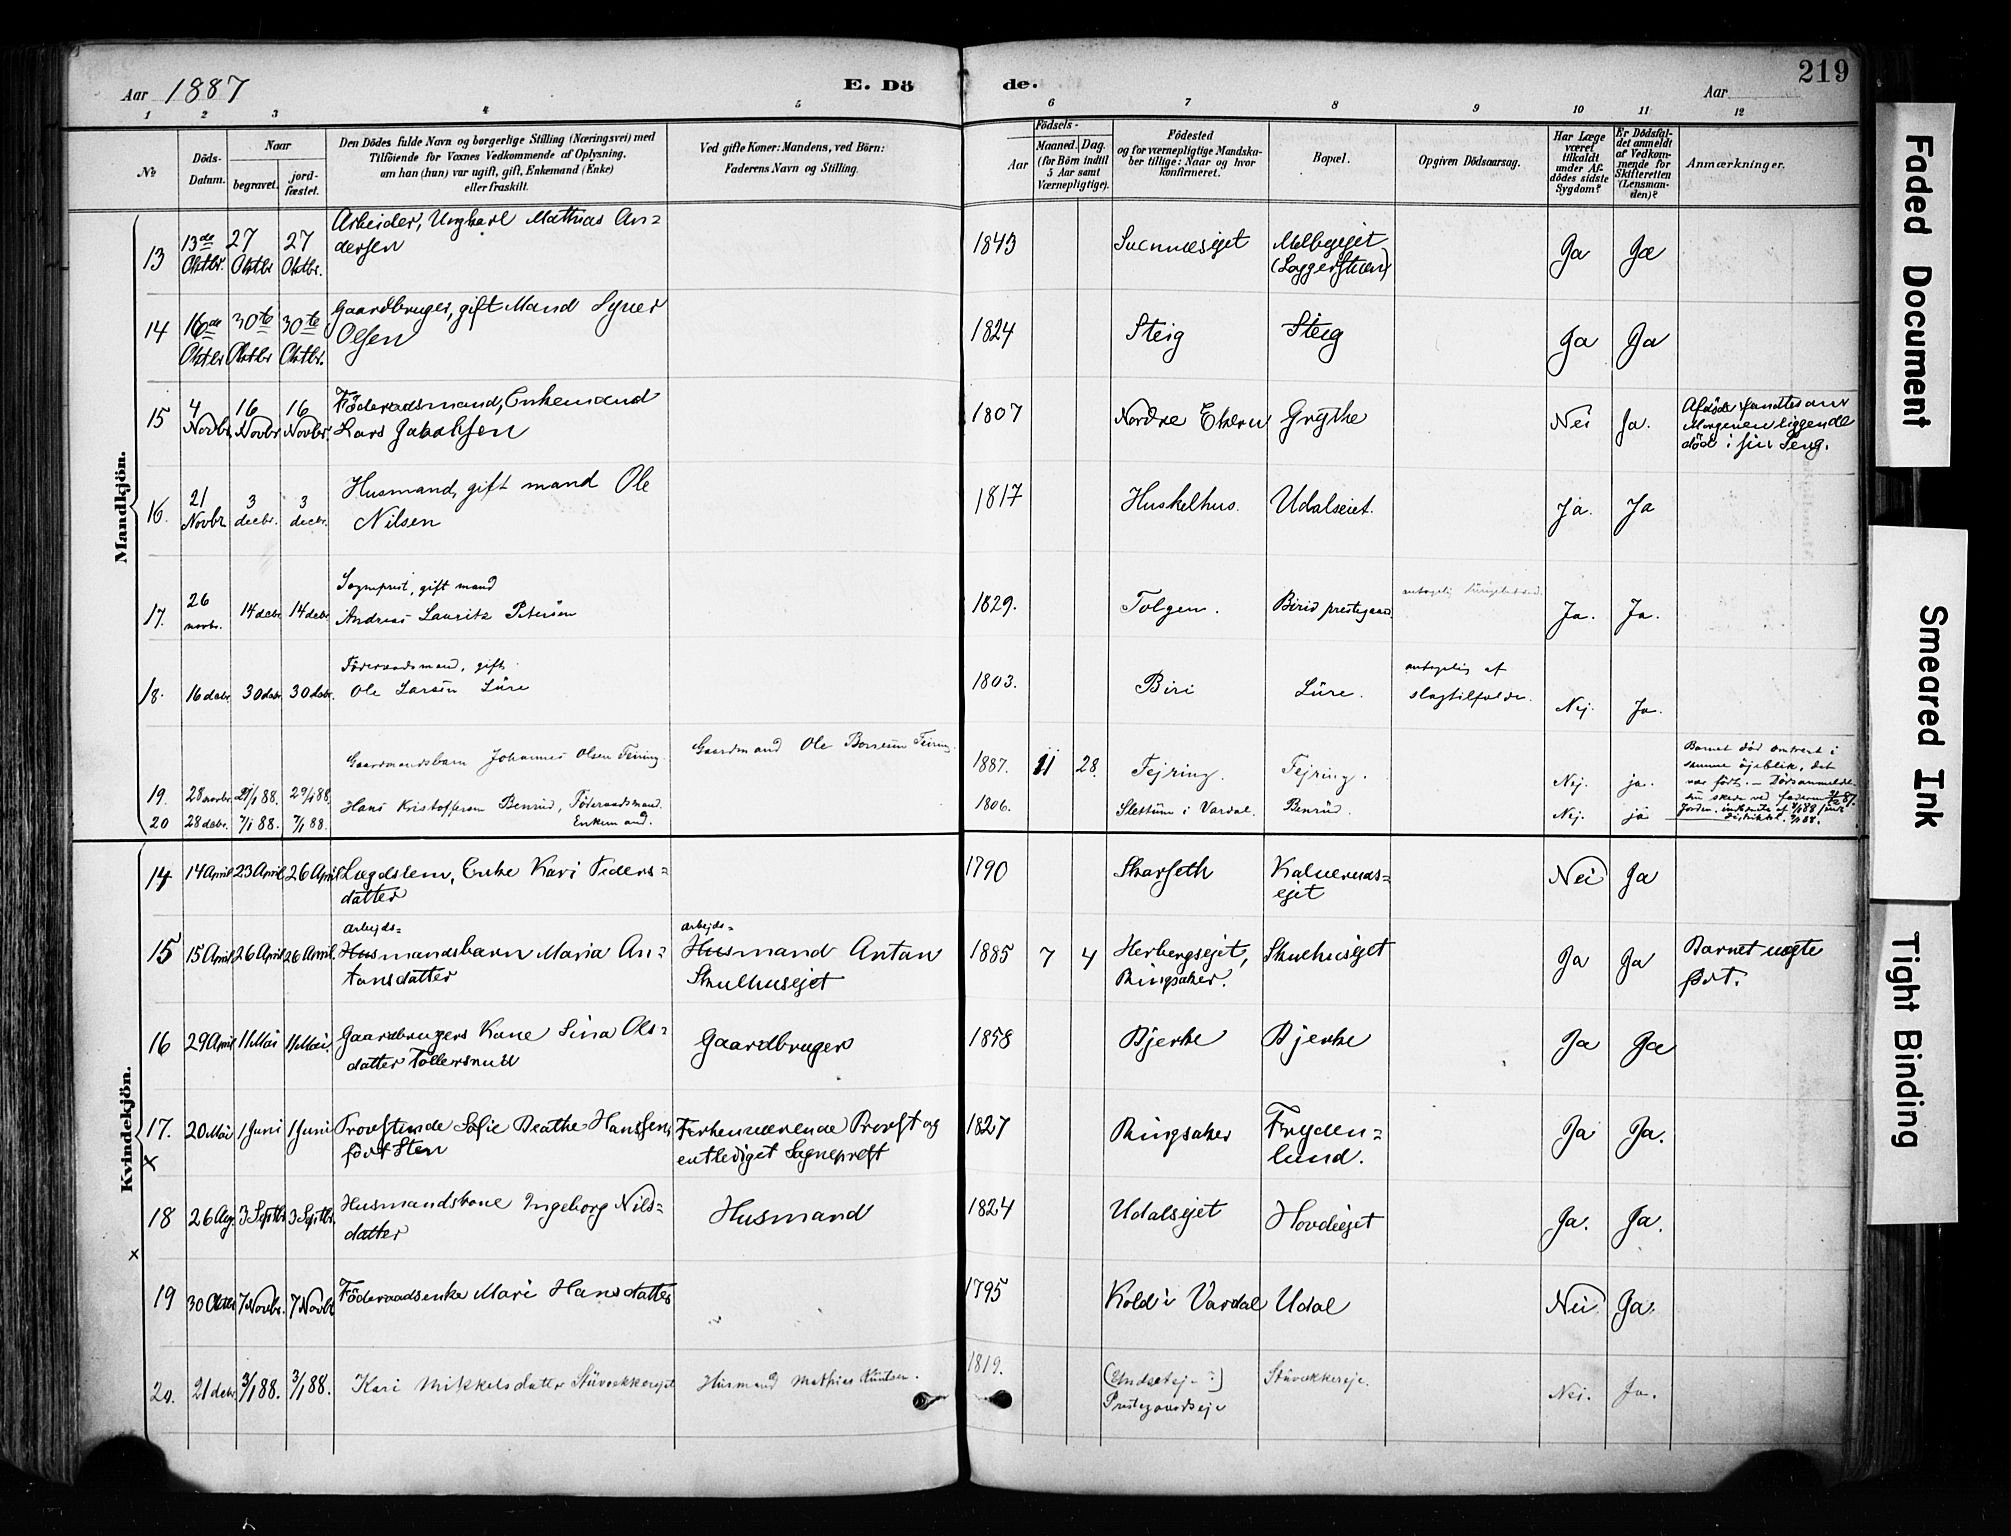 Aar 1887
E. Dö
de.
Aar
219
1 2 3 4 5 6 7 8 9 10 11 12
№
Döds-Datum.
Naar
begravet.
jord-fæstet.
Den Dödes fulde Navn og borgerlige Stilling (Næringsvei) med
Tilföiende for Voxnes Vedkommende af Oplysning,
om han (hun) var ugift, gift, Enkemand (Enke)
eller fraskilt.
Ved gifte Koner: Mandens, ved Börn:
Faderens Navn og Stilling.
Födsels-
Aar
Maaned.
Dag.
(for Börn indtil
5 Aar samt
Værnepligtige).
Födested
og for værnepligtige Mandska-
ber tillige: Naar og hvor
konfirmeret.
Bopæl.
Opgiven Dödsaarsag.
Har Læge
været
tilkaldt
under Af-
dödes sidste
Sygdom?
Er Dödsfal-
det anmeldt
af Vedkom-
mende for
Skifteretten
(Lensman-
den)?
Anmærkninger.
Mandkjön.
13 13de Oktbr. 27 Oktbr 27 Oktbr. Arbeider, Ungkarl Mathias An=
dersen 1843 Svennæsejet Melbyejet Ja Ja
14 16de Oktbr 30te Oktbr 30te Oktbr. Gaardbruger, gift Mand Syver
Olsen 1824 Steig Steig Ja Ja
15 4 Novbr. 16 Novbr 16 Novbr. Föderaadsmand, Enkemand
Lars Jakobsen 1807 Nordre Ekern Grythe Nei Ja. Afdøde fandtes om
Morgenen liggende
død i sin Seng.
16. 21 Novbr 3 decbr. 3 decbr. Husmand, gift mand Ole
Nilsen 1817 Huskelhus. Udalseiet. Ja. Ja
17. 26 novbr. 14 decbr 14 decbr Sogneprest, gift mand
Andreas Lauritz Petersen 1829. Tolgen. Birid prestegaard antagelig Ja. Ja.
18. 16 decbr. 30 decbr. 30 decbr. Föderaadsmand, gift.
Ole Larsen Lüre 1803. Biri Lüre. antagelig af
slagtilfælde. Nej. Ja.
19. 28 novbr. 29/1 88. 29/1 88. Gaardmandsbarn Johannes Olsen Feiring Gaardmand Ole Feiring. 1887. 11 28. Fejring. Fejring. Nej. ja. Barnet død omtrent i
samme öjeblik, det
var født. —
20 28 decbr. 7/1 88. 7/1 88. Hans Kristoffersen Benrud, Föderaadsmand.
Enkemand. 1806. Slettum i Vardal. Benrüd. Nej. ja
Kvindekjön.
14 14 April 23 April 26 April Lægdslem, Enke Kari Peders=
datter 1790 Skarseth Kalverud=
ejet Nei Ja
15 15 April 26 April 26 April. arbejds=
Husmandsbarn Maria An=
tonsdatter arbejds=
Husmand Anton
Skulhusejet 1885 7 4 Herbergsejet,
Ringsaker. Skulhusejet Ja Ja Barnet uægte
født.
16 29 April 11 Mai 11 Mai. Gaardbrugers Kone Lina Ols=
datter Tollersrud Gaardbruger 1858 Bjerke Bjerke Ja Ja
17. 20 Mai 1 Juni 1 Juni Provstinde Sofie Beathe Hanssen,
født Sten Forhenværende Provst og
entlediget Sogneprest 1827 Ringsaker Fryden=
lund. Ja Ja.
x
18 26 Aug. 3 Septbr 3 Septbr. Husmandskone Ingeborg Nils=
datter Husmand 1824 Udalsejet Hovdeejet Ja. Ja.
x
19 30 Oktbr 7 Novbr. 7 Novbr Föderaadsenke Mari Hansdatter 1795 Kold i Vardal Udal Nei. Ja.
20. 21 decbr 3/1 88. 3/1 88. Kari Mikkelsdatter Stüvækkerejet Husmand Mathias Knutsen. 1819.
Prestegaardseje Stüvækkereje. Nei. Ja.
Faded Document
Smeared Ink
Tight Binding